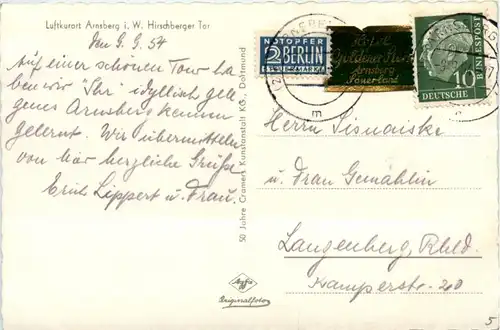 Luftkurort Arnsberg i. W. Hirschberger Tor
Den 9. 9. 54
Auf einer schönen Tour ha-
ben wir "Ihr" idyllisch gele-
genes Arnsberg kennen
gelernt. Wir übermitteln
von hier herzliche Grüße
Erich Lippert u. Frau.
50 Jahre Cramers Kunstanstalt KG., Dortmund
Agfa
Originalfoto
NOTOPFER
2 BERLIN
STEUERMARKE
Hotel
Goldener Stern
Arnsberg
Sauerland
10
DEUTSCHE BUNDESPOST
m
Herrn Sismanske
u. Frau Gemahlin
Langenberg, Rhld.
Kamperstr. 20
5